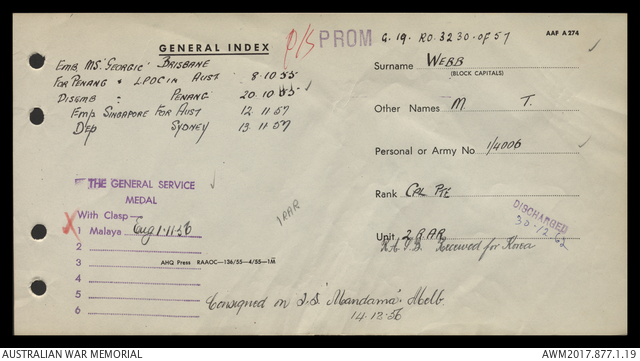 GENERAL INDEX
P/S PROM G.19. RO.3230.OF 57
AAF A 274
Emb M.S. 'GEORGIC' BRISBANE
FOR PENANG & LPOC IN AUST 8.10.55
DISEMB : PENANG 20.10.55
Emp SINGAPORE FOR AUST 12.11.57
DEP SYDNEY 13.11.57
Surname WEBB
(BLOCK CAPITALS)
Other Names M. T.
Personal or Army No 1/4006
Rank CPL PTE
Unit 2 RAR
Received for Korea
DISCHARGED
30.12.62
1 RAR
THE GENERAL SERVICE
MEDAL
With Clasp—
1 Malaya Eng 1.11.56
2
3
4
5
6
AHQ Press RAAOC—136/55—4/55—1M
Consigned on S.S. 'Mandama'. Melb.
14.12.56
AUSTRALIAN WAR MEMORIAL
AWM2017.877.1.19